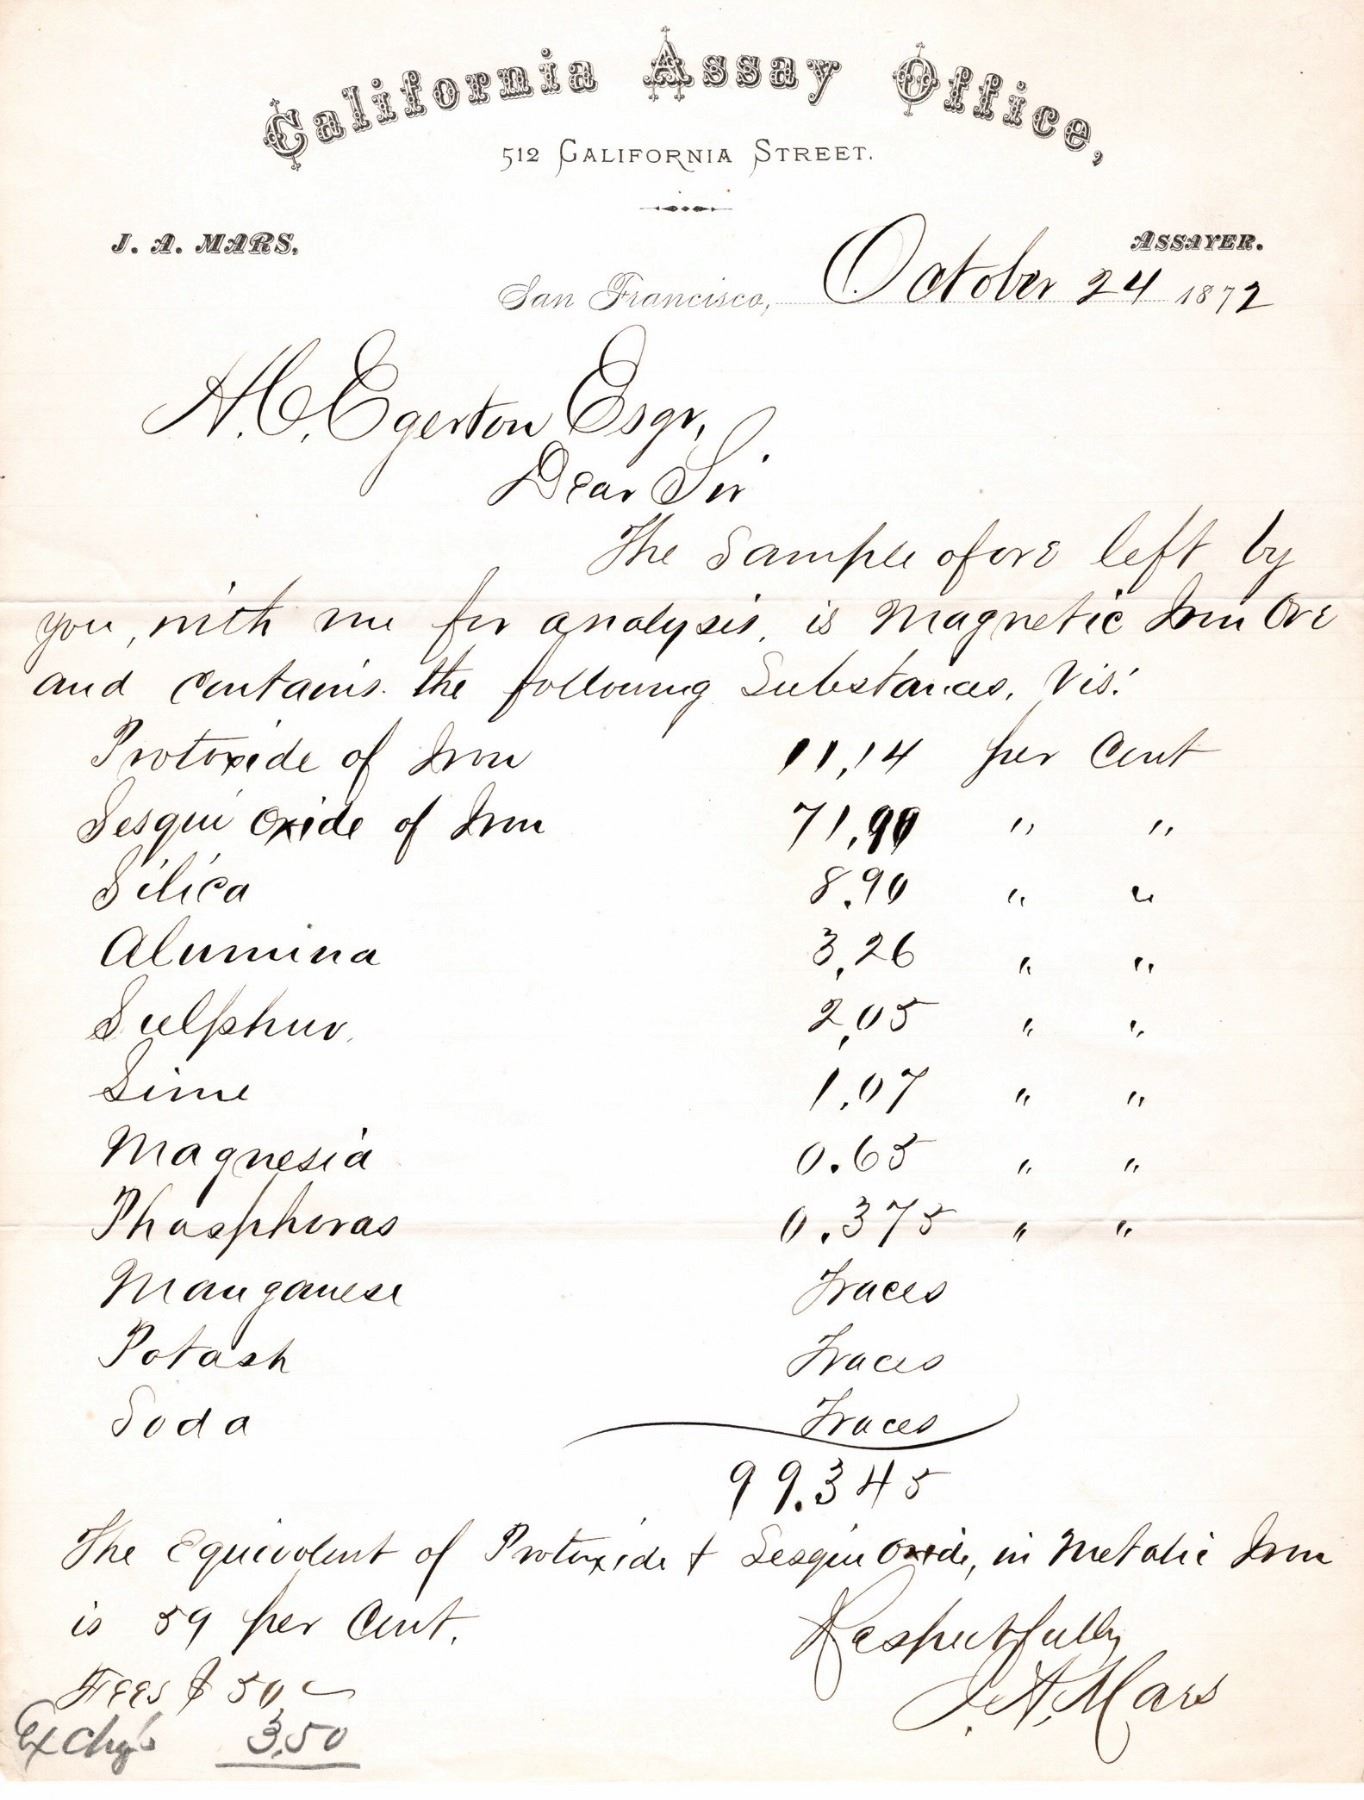 California Assay Office,
512 CALIFORNIA STREET.
J. A. MARS, ASSAYER.
San Francisco, October 24 1872
H. C. Egerton Esqr,
Dear Sir
The Sample of ore left by
you, with me for analysis, is Magnetic Iron Ore
and contains the following Substances, Vis:
Protoxide of Iron 11,14 per Cent
Sesqui Oxide of Iron 71,90 " "
Silica 8.90 " "
Alumina 3,26 " "
Sulphur 2,05 " "
Lime 1.07 " "
Magnesia 0.65 " "
Phosphoras 0.375 " "
Manganese Traces
Potash Traces
Soda Traces
99.345
The Equivolent of Protoxide & Sesqui Oxide, in Metalic Iron
is 59 per Cent.
Respectfully
J. A. Mars
Fees $50
Ex Chg's 3.50